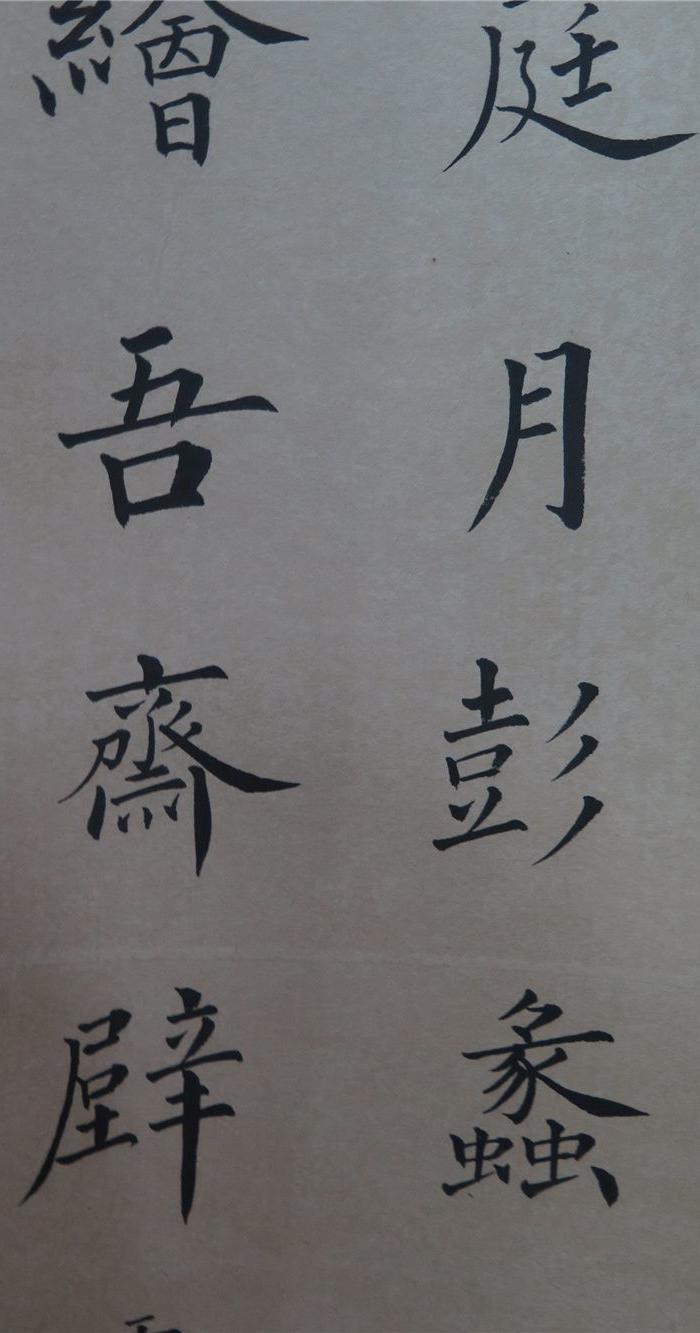 庭月彭蠡
繪吾齋壁